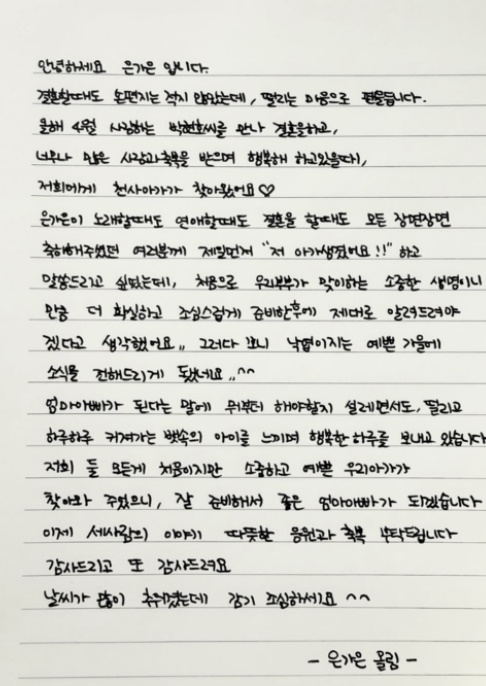 안녕하세요 은가은 입니다.
결혼할때도 손편지는 적지 않았는데, 떨리는 마음으로 펜을듭니다.
올해 4월 사랑하는 박현호씨를 만나 결혼을하고,
너무나 많은 사랑과축복을 받으며 행복해 하고있을때,
저희에게 천사아가가 찾아왔어요♡
은가은이 노래할때도 연애할때도 결혼을 할때도 모든 장면장면
축하해주셨던 여러분께 제일먼저 "저 아가생겼어요!!" 하고
말씀드리고 싶었는데, 처음으로 우리부부가 맞이하는 소중한 생명이니
만큼 더 확실하고 조심스럽게 준비한후에 제대로 알려드려야
겠다고 생각했어요,, 그러다 보니 낙엽이지는 예쁜 가을에
소식을 전해드리게 됐네요,,^^
엄마아빠가 된다는 말에 뭐부터 해야할지 설레면서도, 떨리고
하루하루 커져가는 뱃속의 아이를 느끼며 행복한하루를 보내고 있습니다
저희 둘 모든게 처음이지만 소중하고 예쁜 우리아가가
찾아와 주었으니, 잘 준비해서 좋은 엄마아빠가 되겠습니다
이제 세사람의 이야기 따뜻한 응원과 축복 부탁드립니다
감사드리고 또 감사드려요
날씨가 많이 추워졌는데 감기 조심하세요 ^^
- 은가은 올림 -